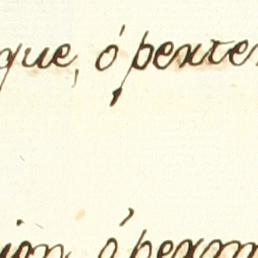 que, ó pexte
ion, ó pexam